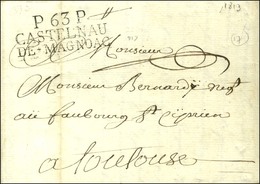 1813
P 63 P
CASTELNAU
DE-MAGNOAC
Monsieur
Monsieur Bernardy neg^t
au faubourg S^t Cyprien
a toulouse